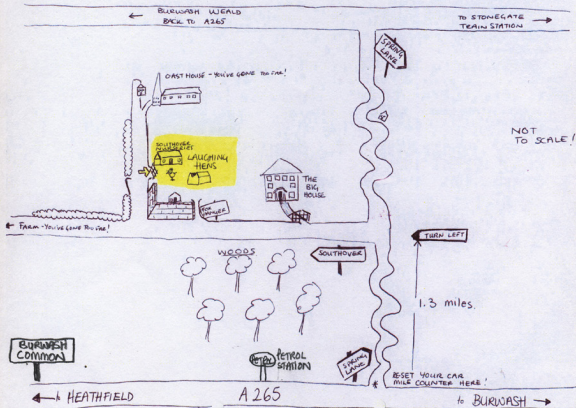 ← BURWASH WEALD
BACK TO A265
TO STONEGATE →
TRAIN STATION
SPRING
LANE
OAST HOUSE - YOU'VE GONE TOO FAR!
NOT
TO SCALE!
SOUTHOVER
NURSERIES
LAUGHING
HENS
THE
BIG
HOUSE
← FARM - YOU'VE GONE TOO FAR!
TURN LEFT
WOODS
SOUTHOVER
1.3 miles.
BURWASH
COMMON
PETROL
PETROL
STATION
SPRING
LANE
* RESET YOUR CAR
MILE COUNTER HERE!
← to HEATHFIELD
A265
to BURWASH →